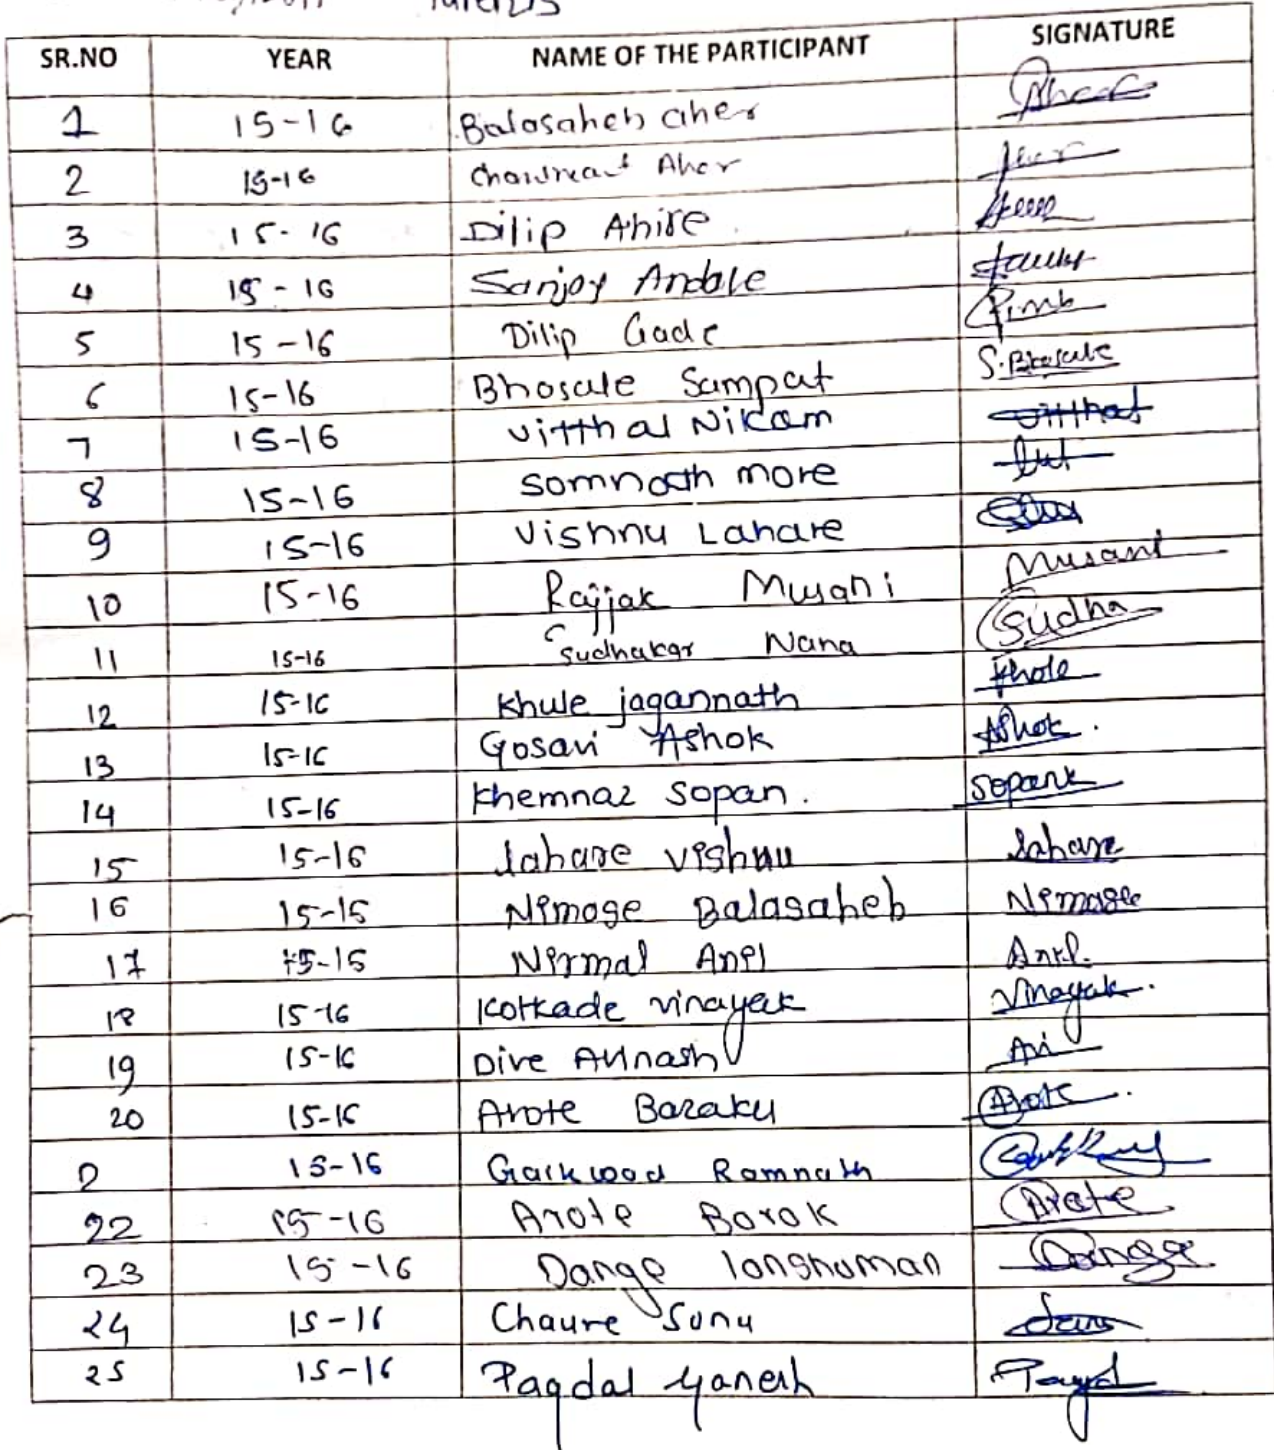 SR.NO YEAR NAME OF THE PARTICIPANT SIGNATURE
1 15-16 Balasaheb aher
2 15-16 Aher
3 15-16 Dilip Ahire
4 15-16 Sanjay Andale
5 15-16 Dilip Gade
6 15-16 Bhosale Sampat S.Bhosale
7 15-16 Vitthal Nikam Vitthal
8 15-16 Somnath more
9 15-16 Vishnu Lahare
10 15-16 Rajjak Musani Musani
11 15-16 Sudhakar Nana Sudha
12 15-16 Khule jagannath Khole
13 15-16 Gosavi Ashok Ashok.
14 15-16 Khemnar Sopan. Sopank
15 15-16 lahare vishnu lahare
16 15-15 Nimage Balasaheb Nimage
17 15-15 Nirmal Anil Anil.
18 15-16 Kotkade vinayak Vinayak.
19 15-16 Dive Avinash Avi
20 15-16 Arote Baraku Arote.
2 15-16 Gaikwad Ramnath
22 15-16 Arote Borok Arote
23 15-16 Dange Dange
24 15-16 Chaure Sonu
25 15-16 Pagdal Ganesh